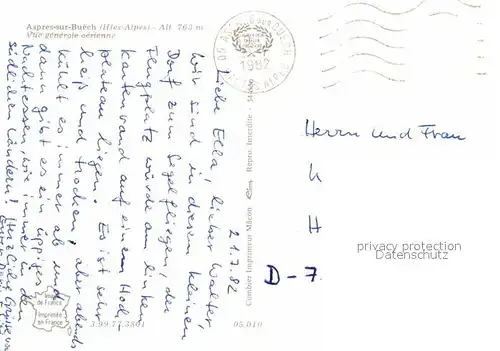 Aspres-sur-Buëch (Htes-Alpes) - Alt. 763 m
Vue générale aérienne
1982
21.7.82
Liebe Ella, lieber Walter,
wir sind in diesem kleinen
Dorf zum Segelfliegen, der
Flugplatz würde am linken
Kartenrand auf einem Hoch-
plateau liegen. Es ist sehr
heiß und trocken, aber abends
kühlt es immer ab und
dann gibt es ein üppiges
Nachtessen, wie immer in den
südlichen Ländern! Herzliche Grüße von
Herrn und Frau
K
H
D-7
privacy protection
Datenschutz
Combier Imprimeur Mâcon
Repro. Interdite
Image
de France
Imprimée
en France
3.99.77.3801
05.010